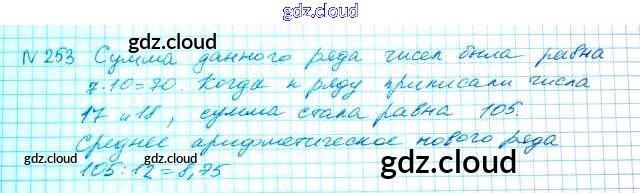 gdz.cloud
gdz.cloud
gdz.cloud
N 253 Сумма данного ряда чисел была равна
7·10=70. Когда к ряду приписали числа
gdz.cloud
17 и 18, сумма стала равна 105.
gdz.cloud
Среднее арифметическое нового ряда
gdz.cloud
gdz.cloud
gdz.cloud
105:12=8,75
gdz.cloud